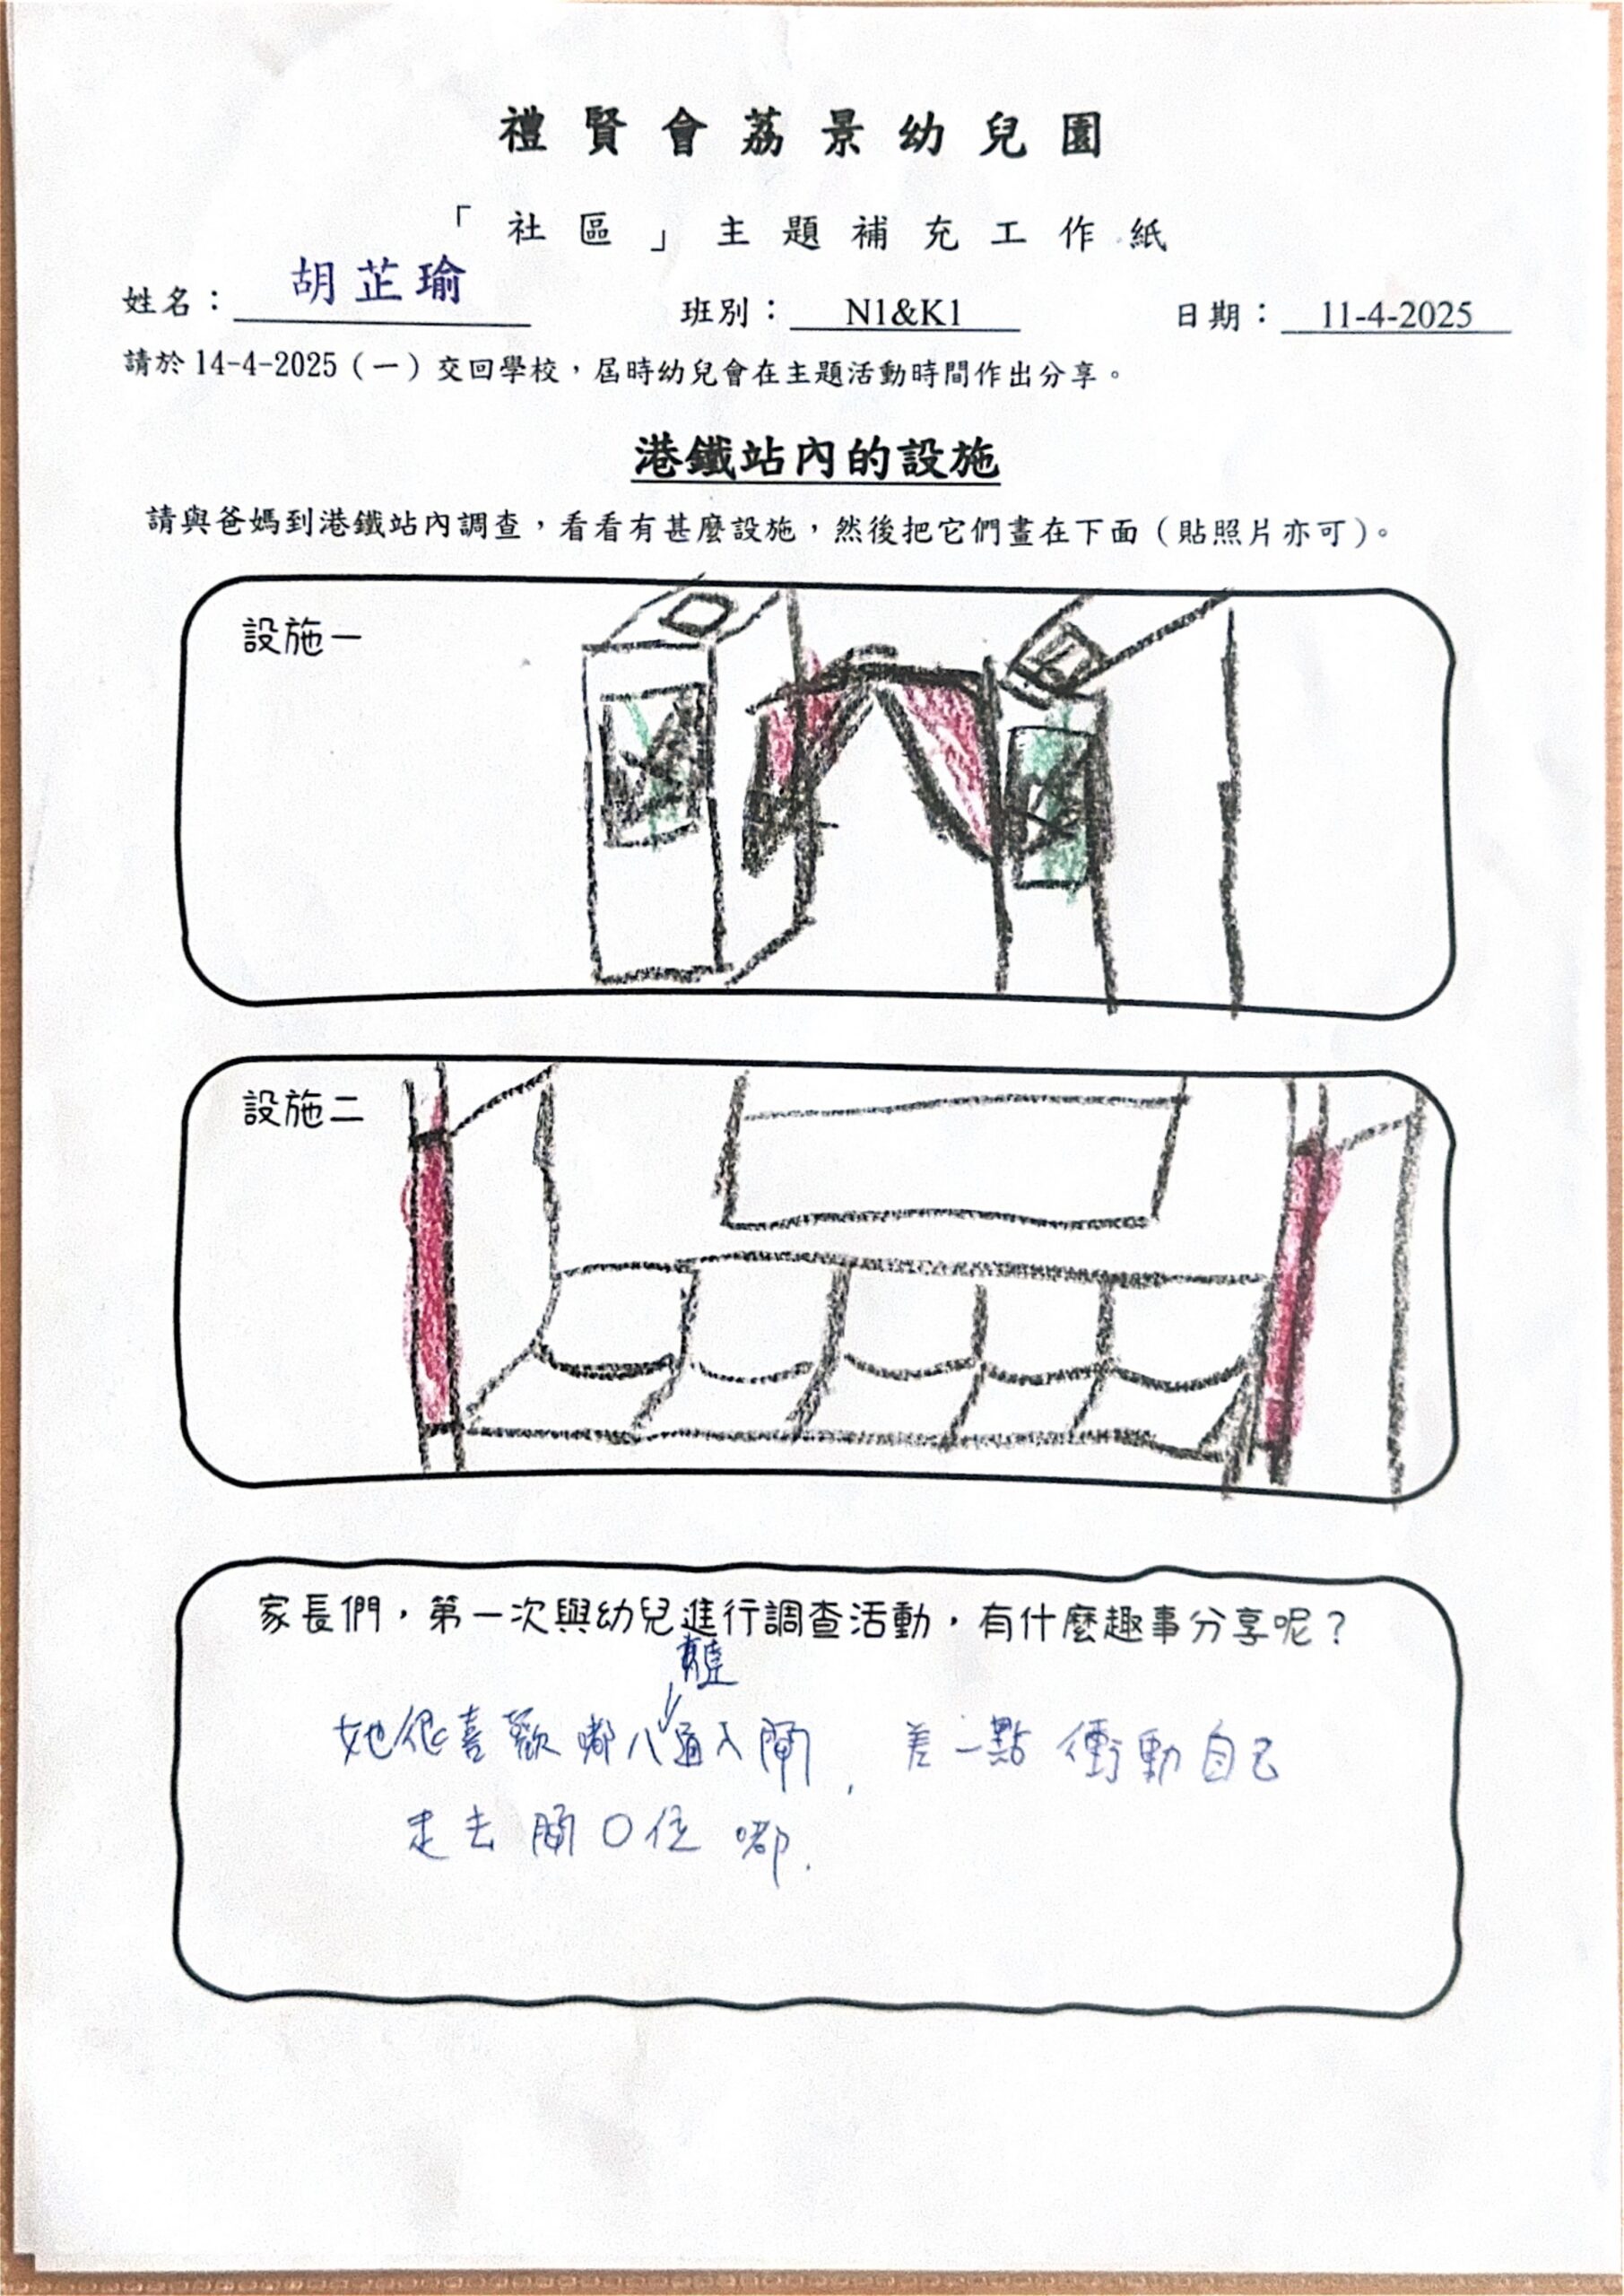 禮賢會荔景幼兒園
「社區」主題補充工作紙
姓名：胡芷瑜 班別：N1&K1 日期：11-4-2025
請於 14-4-2025（一）交回學校，屆時幼兒會在主題活動時間作出分享。
港鐵站內的設施
請與爸媽到港鐵站內調查，看看有甚麼設施，然後把它們畫在下面（貼照片亦可）。
設施一
設施二
家長們，第一次與幼兒進行調查活動，有什麼趣事分享呢？
她很喜歡嘟八達通入閘，差一點衝動自己
走去閘口位嘟.